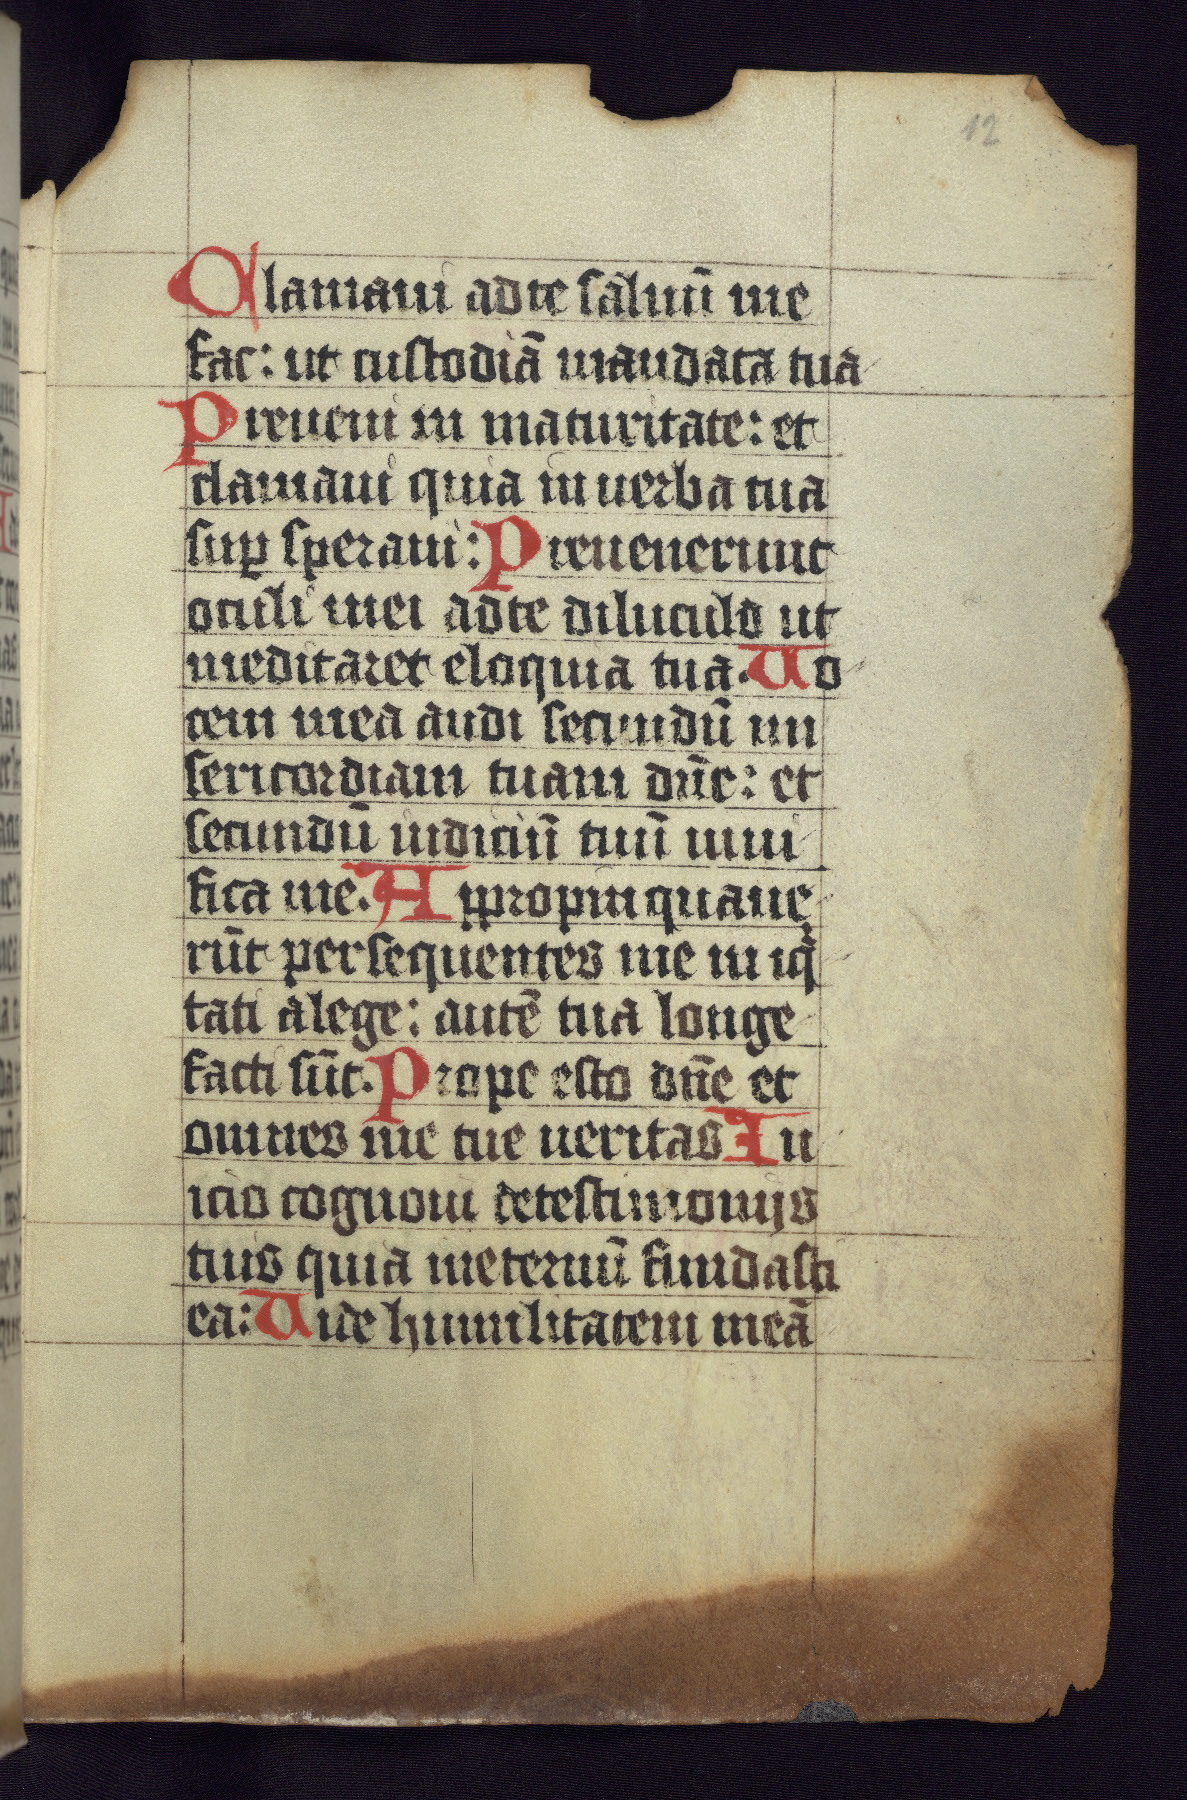 12
Clamaui ad te saluū me
fac: ut custodiā mandata tua
Preueni in maturitate: et
clamaui quia in uerba tua
suꝑ speraui: Preuenerunt
oculi mei ad te diluculo ut
meditaret eloquia tua. Uo
cem mea audi secundū mi
sericordiam tuam dn̄e: et
secundū iudiciū tuū uiui
fica me. Appropinquaue
rūt persequentes me in iq̄
tati a lege: autē tua longe
facti sūt. Prope esto dn̄e et
omnes uie tue ueritas In
icio cognoui de testimonijs
tuis quia in eternū fundasti
ea: Uide humilitatem meā